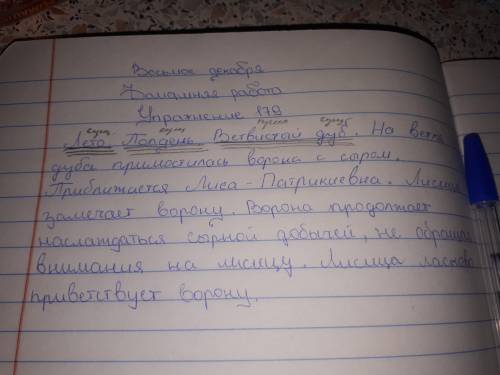 Восьмое декабря
Домашняя работа
Упражнение 179
сущ. сущ. сущ.
Лето. Полдень. Ветвистый дуб. На ветке
дуба примостилась ворона с сыром.
Приближается Лиса-Патрикиевна. Лисица
замечает ворону. Ворона продолжает
наслаждаться сырной добычей, не обращая
внимания на лисицу. Лисица ласково
приветствует ворону.